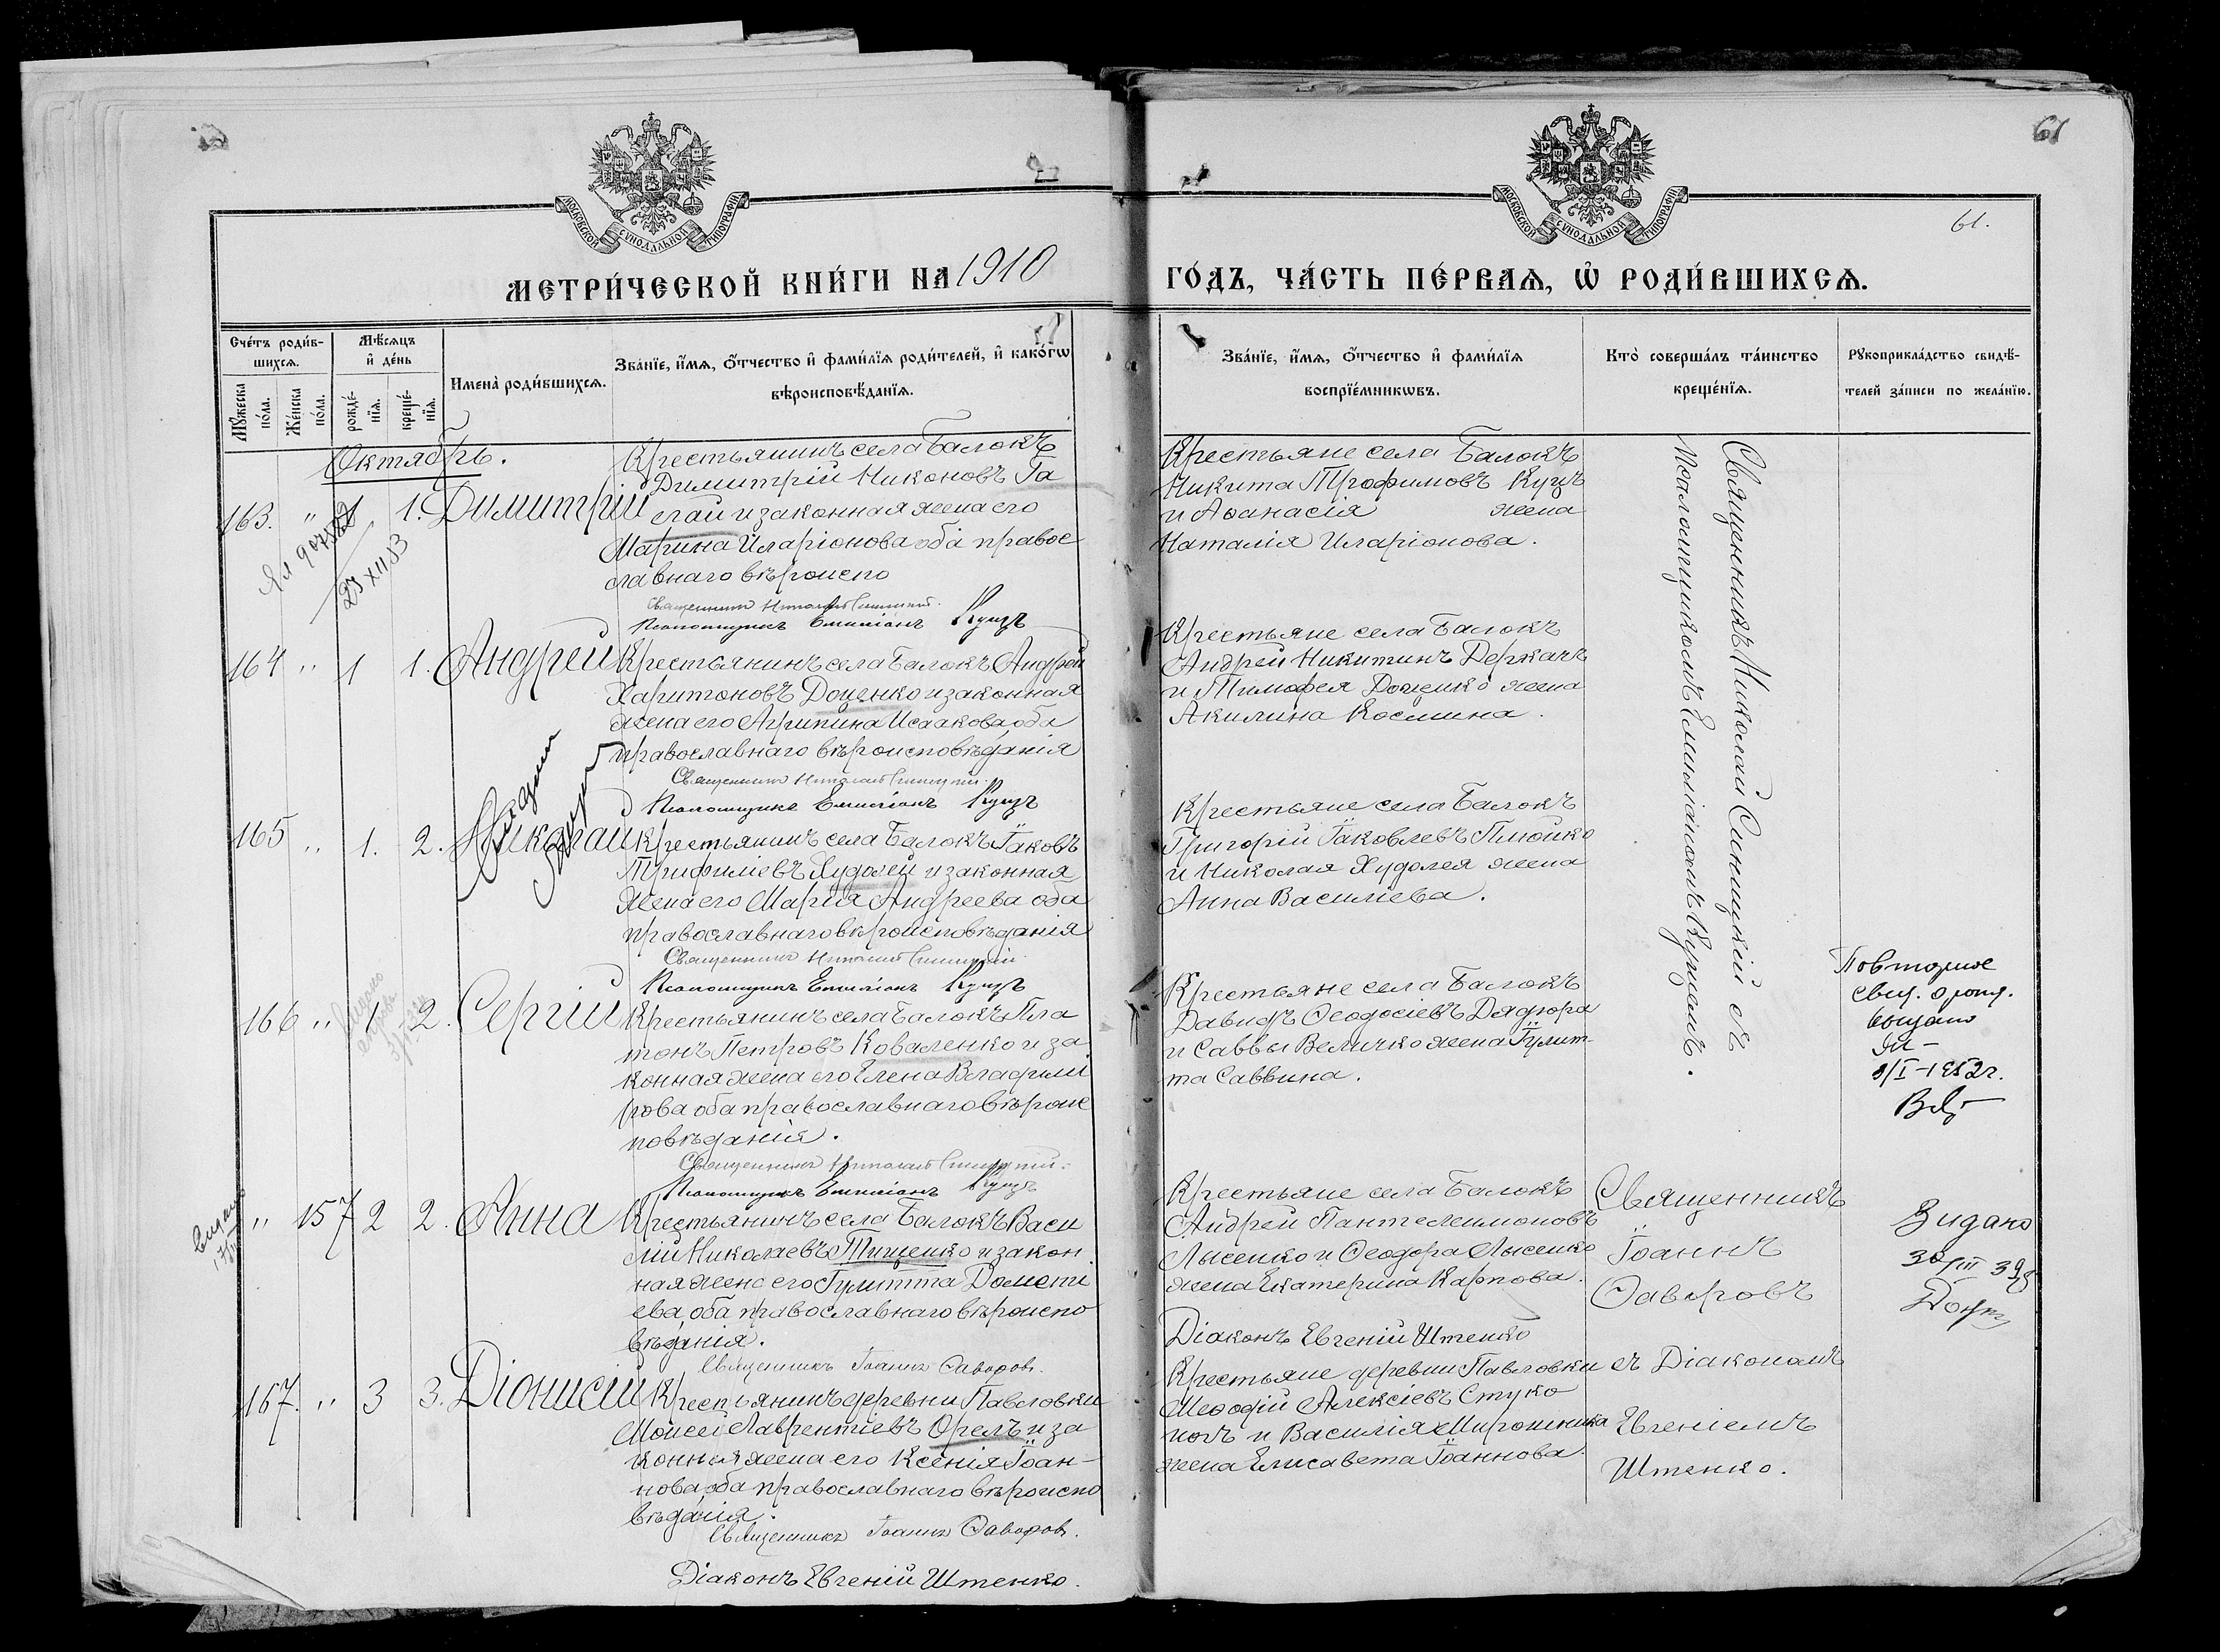 61
61.
МОСКОВСКОЙ СУНОДАЛЬНОЙ ТИПОГРАФІИ
МОСКОВСКОЙ СУНОДАЛЬНОЙ ТИПОГРАФІИ
МЕТРИ́ЧЕСКОЙ КНИ́ГИ НА 1910 ГО́ДЪ, ЧА́СТЬ ПЕ́РВАѦ, Ѡ҆ РОДИ́ВШИХСѦ.
Сче́тъ роди́в-
шихсѧ.
Мꙋ́жеска
по́ла.
Же́нска
по́ла.
Мѣ́сѧцъ
и҆ де́нь
рожде́-
нїѧ.
креще́-
нїѧ.
Имена̀ роди́вшихсѧ.
Зва́нїе, и҆́мѧ, о҆́тчество и҆ фами́лїѧ роди́телей, и҆ како́гѡ
вѣроисповѣ́данїѧ.
Зва́нїе, и҆́мѧ, о҆́тчество и҆ фами́лїѧ
воспрїе́мникѡвъ.
Кто̀ соверша́лъ та́инство
креще́нїѧ.
Рꙋкоприкла́дство свидѣ́-
телей за́писи по жела́нїю.
Октябрь.
163. " 1 1. Димитрій
Крестьянинъ села Балокъ
Димитрій Никоновъ Га
гай и законная жена его
Марина Иларіонова оба правос
лавнаго вѣроиспо
Священникъ Николай Синицкій.
Псаломщикъ Емиліанъ Куцъ
Крестьяне села Балокъ
Никита Трофимовъ Куцъ
и Аѳанасія жена
Наталія Иларіонова.
23 XII 53
Священникъ Николай Синицкій съ
Псаломщикомъ Емиліаномъ Куцемъ.
164 " 1 1. Андрей
Крестьянинъ села Балокъ Андрей
Харитоновъ Доценко и законная
жена его Агрипина Исаакова, оба
православнаго вѣроисповѣданія
Священникъ Николай Синицкій.
Псаломщикъ Емиліанъ Куцъ
Крестьяне села Балокъ
Андрей Никитинъ Деркачъ
и Тимофея Доценко жена
Акилина Космина.
165 " 1. 2. Николай
Крестьянинъ села Балокъ Іаковъ
Трифиліевъ Худолей и законная
жена его Марія Андреева оба
православнаго вѣроисповѣданія
Священникъ Николай Синицкій.
Псаломщикъ Емиліанъ Куцъ
Крестьяне села Балокъ
Григорій Іаковлевъ Плюйко
и Николая Худолея жена
Анна Василіева.
166 " 1 2. Сергій
Крестьянинъ села Балокъ Пла
тонъ Петровъ Коваленко и за
конная жена его Елена Владимі
рова оба православнаго вѣроис
повѣданія.
Священникъ Николай Синицкій.
Псаломщикъ Емиліанъ Куцъ
Крестьяне села Балокъ
Давидъ Ѳеодосіевъ Дядюра
и Саввы Величко жена Іулит-
та Саввина.
Повторное
свид. о рожд.
выдано
3/I-1952г.
" 157 2 2. Анна
Крестьянинъ села Балокъ Васи
лій Николаевъ Тищенко и закон
ная жена его Іулитта Домети
ева, оба православнаго вѣроиспо
вѣданія.
Священникъ Іоаннъ Ѳаворовъ.
Крестьяне села Балокъ
Андрей Пантелеимоновъ
Лысенко и Ѳеодора Лысенко
жена Екатерина Карпова.
Діаконъ Евгеній Штенко
Священникъ
Іоаннъ
Ѳаворовъ
съ Діакономъ
Евгеніемъ
Штенко.
Видано
30/III 39
167. " 3 3. Діонисій
Крестьянинъ деревни Павловки
Моисей Лаврентіевъ Орелъ и за
конная жена его Ксенія Іоан-
нова, оба православнаго вѣроиспо
вѣданія.
Священникъ Іоаннъ Ѳаворовъ.
Діаконъ Евгеній Штенко.
Крестьяне деревни Павловки
Меѳодій Алексіевъ Стуко
ногъ и Василія Мирошника
жена Елисавета Іоаннова.